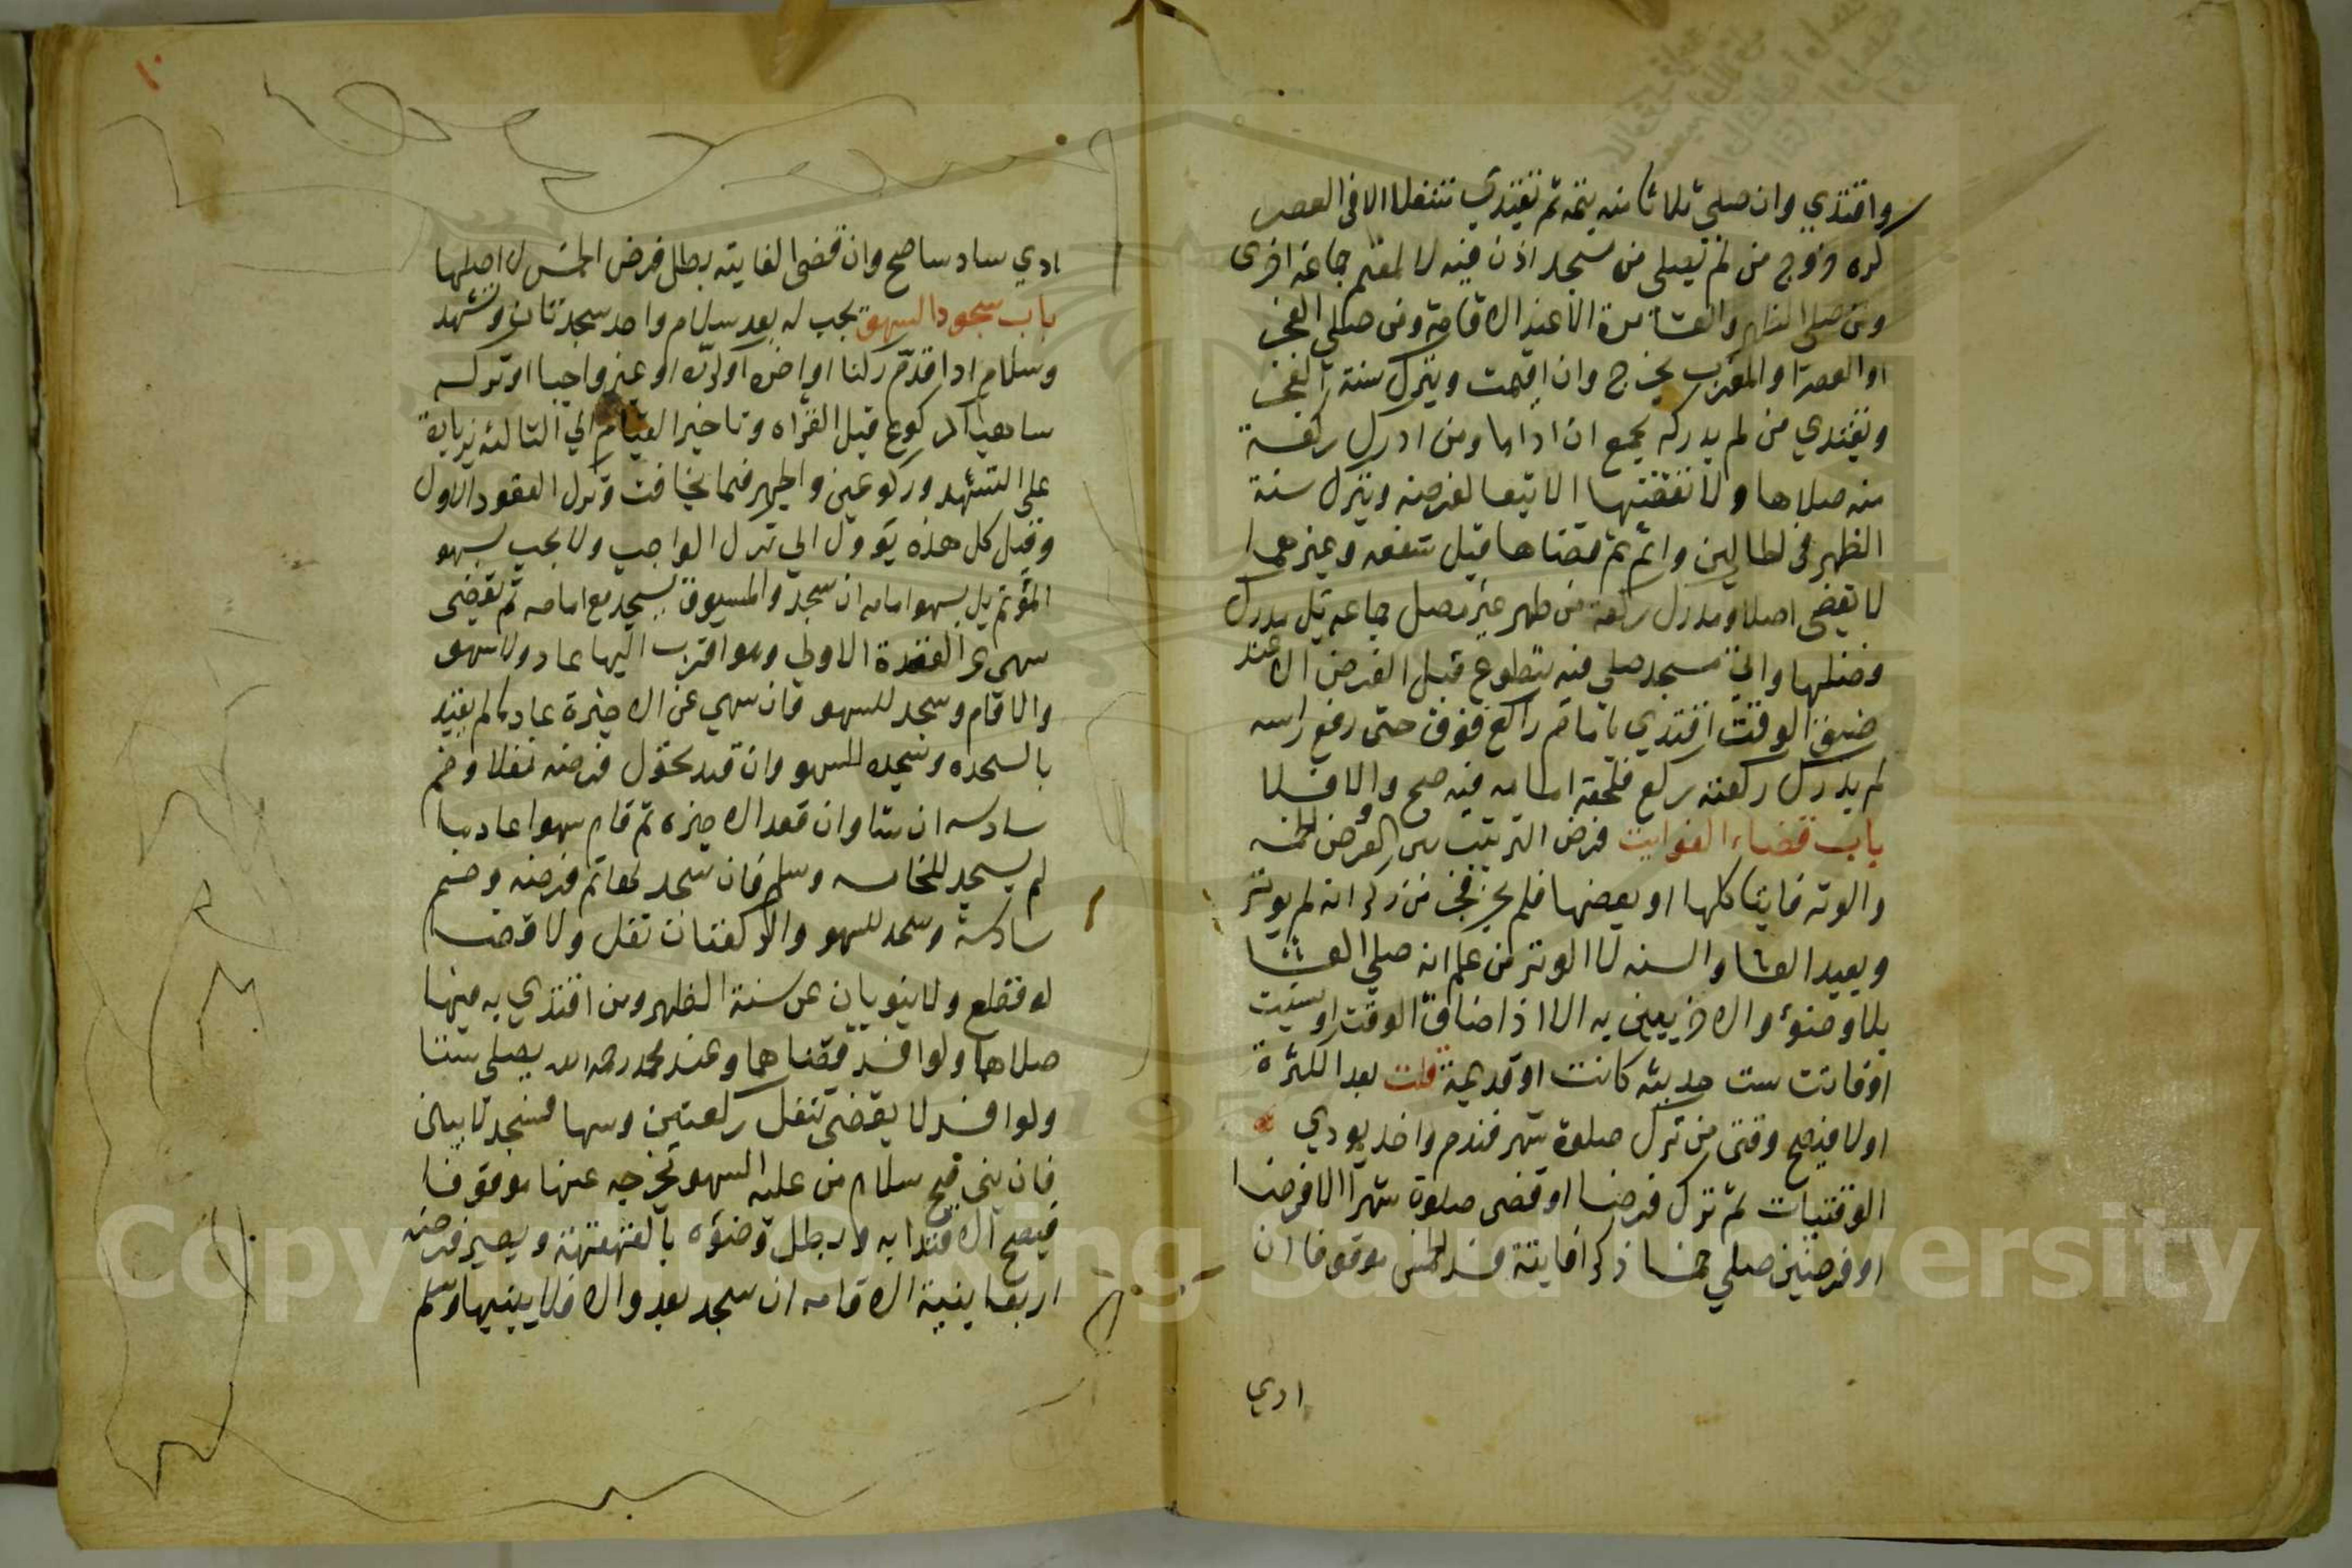 واقتدي وان صلي ثلاثا منه يتمه ثم تقتدي متنفلا الا في العصر
كره خروج من لم يصلي من مسجد اذن فيه لا لمقيم جماعة اخري
ومن صلي الظهر والعشا مرة الا عند الاقامة ومن صلي الفجر
او العصر او المغرب يخرج وان اقيمت ويترك سنة الفجر
ويقتدي من لم يدركه بجمع ان اداها ومن ادرك ركعة
منه صلاها ولا نقضيها الا تبعا لفرضه ويترك سنة
الظهر في الحالين واتم ثم قضاها قبل شفعه وغيرهما
لا يقضي اصلا ومدرك ركعة من ظهر غير مصل جماعة بل مدرك
فضلها واتي مسجد صلي فيه يتطوع قبل الفرض الا عند
ضيق الوقت اقتدي بامام راكع فوقف حتى رفع راسه
لم يدرك ركعته ركع فلحقه امامه فيه صح والا فلا
باب قضاء الفوايت فرض الترتيب بين الفروض الخمسه
والوتر فايتا كلها او بعضها فلم يجز فجر من ذكر انه لم يوتر
ويعيد العشا والسنه لا الوتر من علم انه صلي العشا
بلا وضوء والاخريين به الا اذا ضاق الوقت او نسيت
او فاتت ست حديثه كانت او قديمة قلت بعد الكثرة
او لا فيصح وقتي من ترك صلوة شهر فندم واخذ يودي
الوقتيات ثم ترك فرضا او قضى صلوة شهر الا فرضا
او فرضين صلي خمسا ذاكرا فايتة فسد الخمس موقوفا ان
ادي
ادي سادسا صح وان قضي الفايته بطل فرض الخمس لا اصلها
باب سجود السهو يجب له بعد سلام واحد سجدتان وتشهد
وسلام اذا قدم ركنا او اخره او كرره او غير واجبا او تركه
ساهيا كركوع قبل القراه وتاخير القيام الي الثالثه بزيادة
على التشهد وركوعين والجهر فيما يخافت وترك القعود الاول
وقيل كل هذه يوول الي ترك الواجب ولا يجب بسهو
الموتم بل بسهو امامه ان سجد والمسبوق يسجد مع امامه ثم يقضي
سهى عن القعدة الاولي وهو اقرب اليها عاد ولا سهو
والا قام وسجد للسهو فان سهي عن الاخيرة عاد ما لم يقيد
بالسجده وسجد للسهو وان قيد تحول فرضه نفلا وضم
سادسه ان شا وان قعد الاخيره ثم قام سهوا عاد ما
لم يسجد للخامسه وسلم فان سجد لها تم فرضه وضم
سادسة وسجد للسهو والركعتان نفل ولا قضا
لو قطع ولا ينوبان عن سنة الظهر ومن اقتدي به فيهما
صلاهما ولو افسد قضاهما وعند محمد رحمه الله يصلي ستا
ولو افسد لا يقضي تنفل ركعتين وسها فسجد لا يبني
فان بني صح سلام من عليه السهو يخرجه عنها موقوفا
فيصح الاقتدا به ويبطل وضوه بالقهقهة ويصير فرضه
اربعا بنية الاقامه ان سجد بعد والا فلا يسهيها وسلم
١٠
Copyright © King Saud University